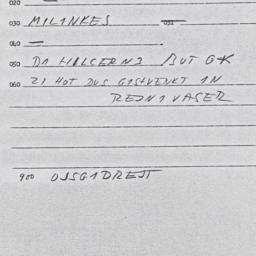 020
030 MILINKES
040 —
050 DI HILCERNI BUT G*K
060 ZI HOT DUS GISVENKT IN
REJNIVASER
900 OJSGIDREJT